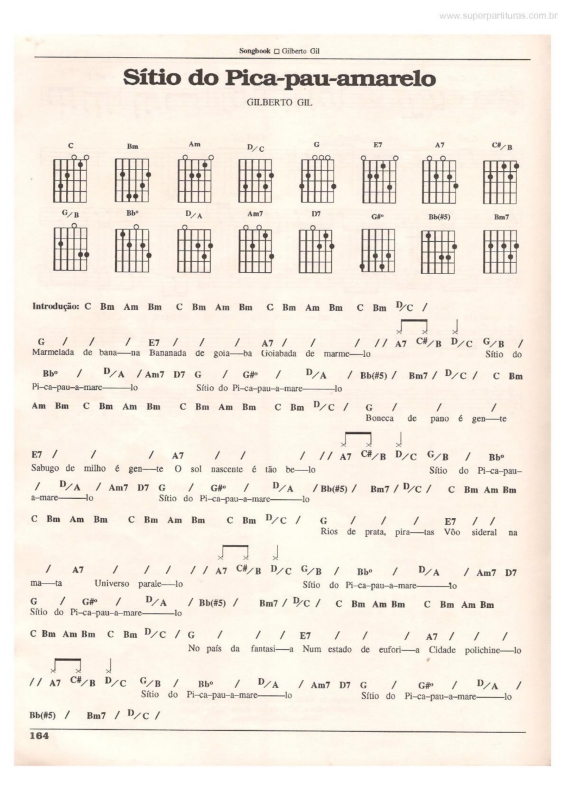 www.superpartituras.com.br
Songbook □ Gilberto Gil
Sítio do Pica-pau-amarelo
GILBERTO GIL
C Bm Am D/C G E7 A7 C#/B
G/B Bbº D/A Am7 D7 G#º Bb(#5) Bm7
Introdução: C Bm Am Bm C Bm Am Bm C Bm Am Bm C Bm D/C /
G / / / E7 / / / A7 / / / / // A7 C#/B D/C G/B /
Marmelada de bana—na Bananada de goia—ba Goiabada de marme—lo Sítio do
Bbº / D/A / Am7 D7 G / G#º / D/A / Bb(#5) / Bm7 / D/C / C Bm
Pi-ca-pau-a-mare———lo Sítio do Pi-ca-pau-a-mare———lo
Am Bm C Bm Am Bm C Bm Am Bm C Bm D/C / G / / /
Boneca de pano é gen—te
E7 / / / A7 / / / // A7 C#/B D/C G/B / Bbº
Sabugo de milho é gen—te O sol nascente é tão be—lo Sítio do Pi-ca-pau-
/ D/A / Am7 D7 G / G#º / D/A / Bb(#5) / Bm7 / D/C / C Bm Am Bm
a-mare———lo Sítio do Pi-ca-pau-a-mare———lo
C Bm Am Bm C Bm Am Bm C Bm D/C / G / / / E7 / /
Rios de prata, pira—tas Vôo sideral na
/ A7 / / / / / A7 C#/B D/C G/B / Bbº / D/A / Am7 D7
ma—ta Universo parale—lo Sítio do Pi-ca-pau-a-mare———lo
G / G#º / D/A / Bb(#5) / Bm7 / D/C / C Bm Am Bm C Bm Am Bm
Sítio do Pi-ca-pau-a-mare———lo
C Bm Am Bm C Bm D/C / G / / / E7 / / / A7 / / /
No país da fantasi—a Num estado de eufori—a Cidade polichine—lo
// A7 C#/B D/C G/B / Bbº / D/A / Am7 D7 G / G#º / D/A /
Sítio do Pi-ca-pau-a-mare———lo Sítio do Pi-ca-pau-a-mare———lo
Bb(#5) / Bm7 / D/C /
164